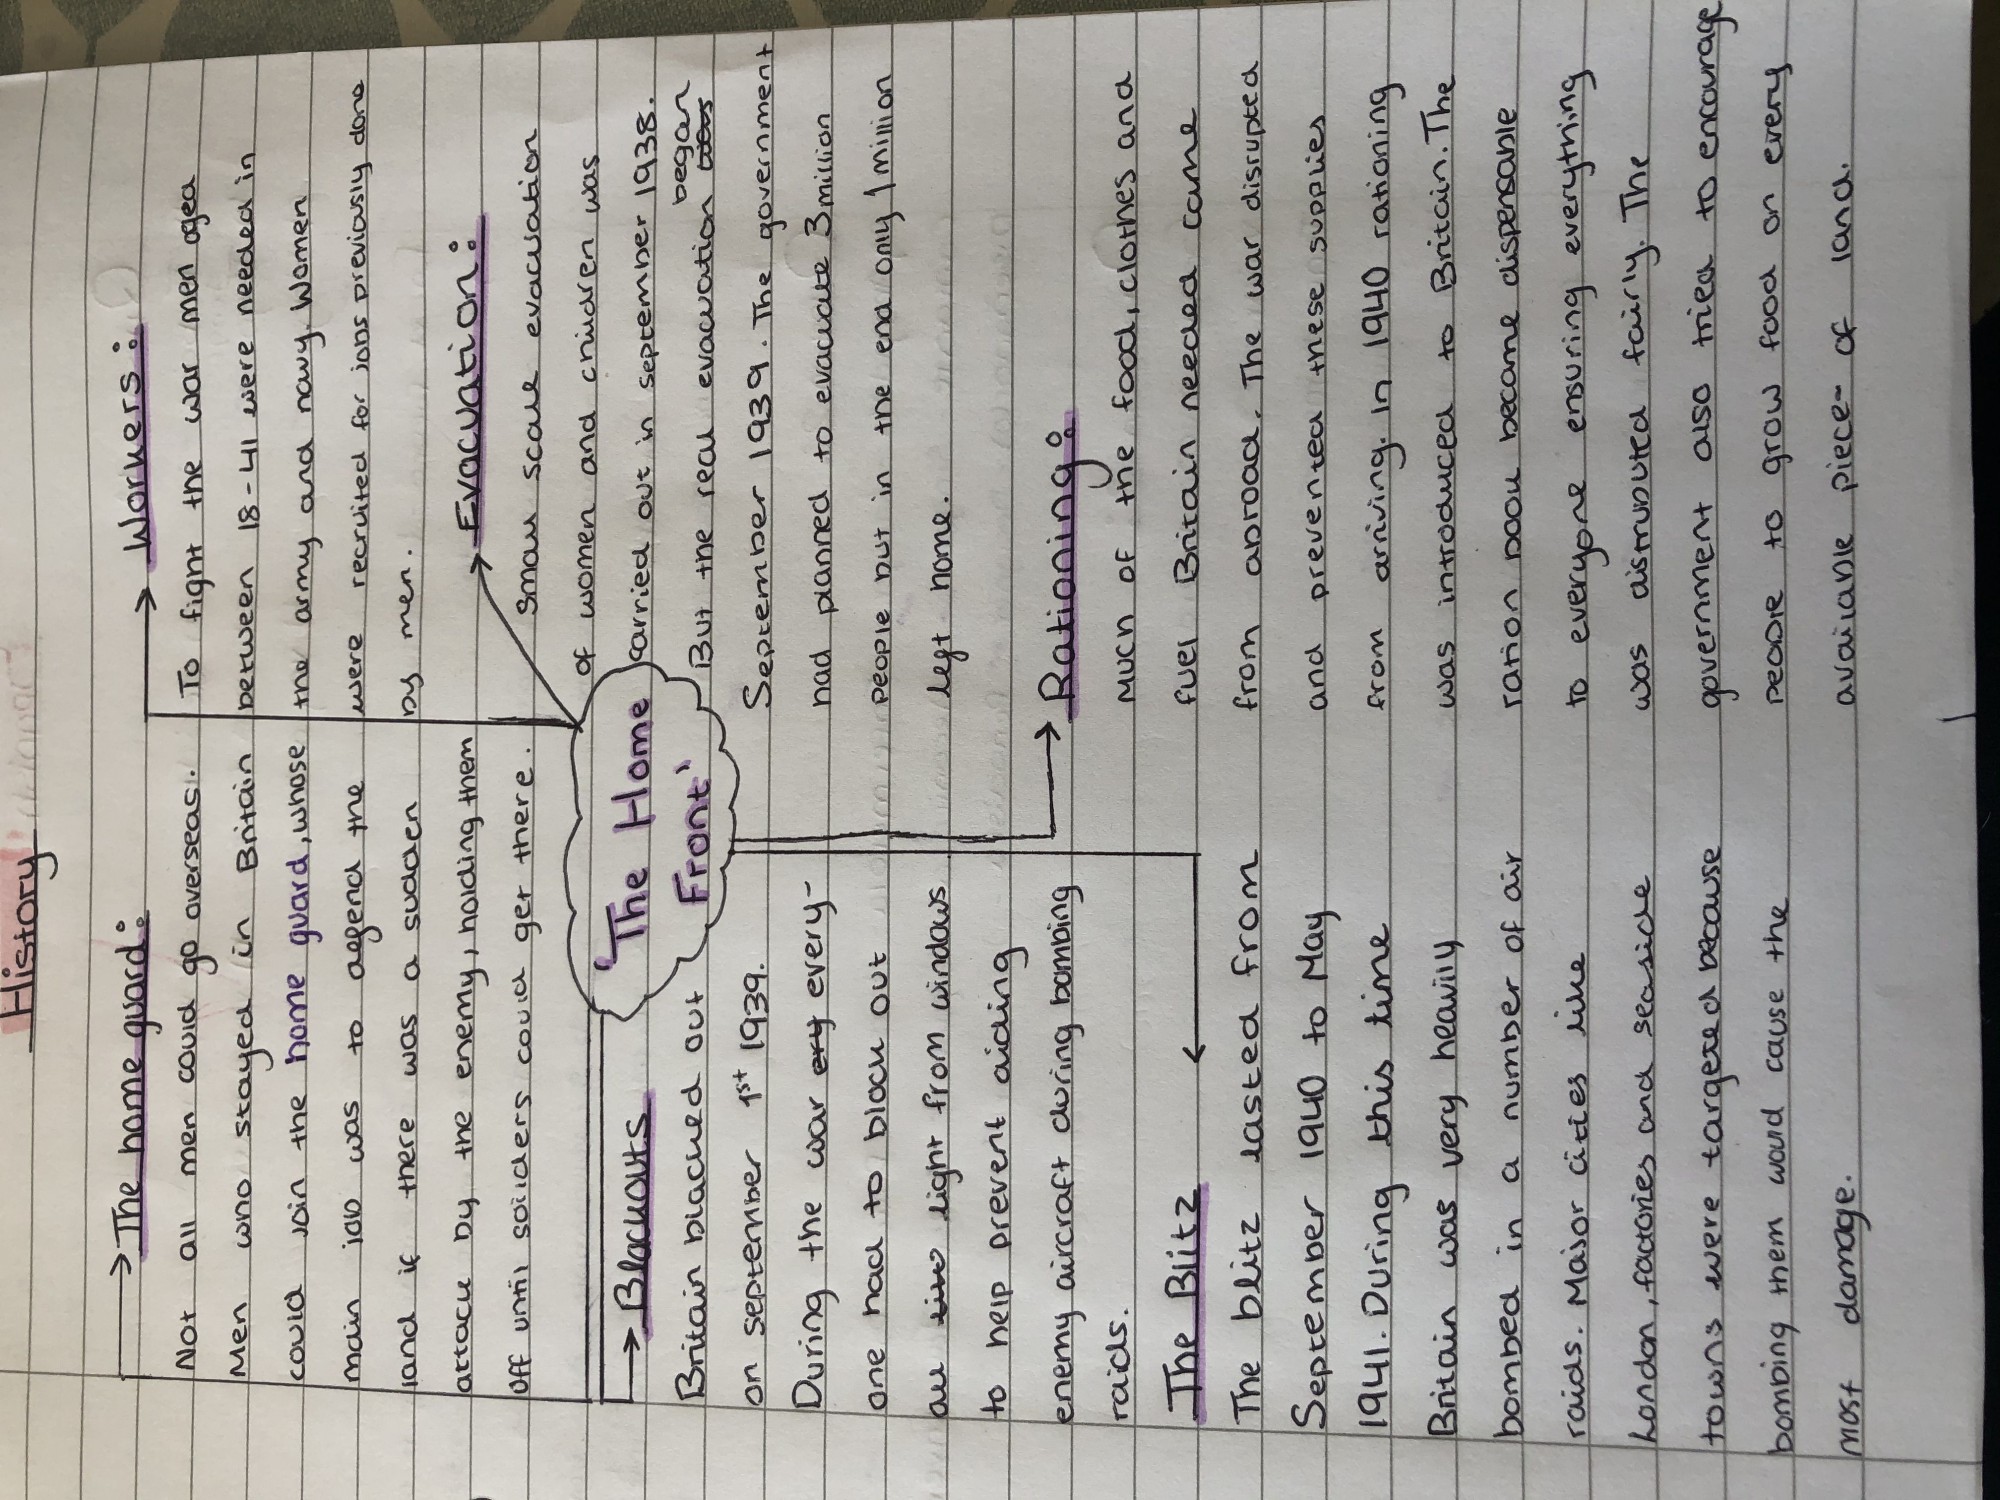 History
The home guard:
Not all men could go overseas.
Men who stayed in Britain
could join the home guard, whose
main job was to defend the
land if there was a sudden
attack by the enemy, holding them
off until soilders could get there.
Workers:
To fight the war men aged
between 18-41 were needed in
the army and navy. Women
were recruited for jobs previously done
by men.
Evacuation:
Small scale evacuation
of women and children was
carried out in september 1938.
But the real evacuation began
September 1939. The government
had planned to evacuate 3 million
people but in the end only 1 million
left home.
'The Home
Front'
Blackouts
Britain blacked out
on september 1st 1939.
During the war every-
one had to block out
all light from windows
to help prevent aiding
enemy aircraft during bombing
raids.
Rationing:
Much of the food, clothes and
fuel Britain needed came
from abroad. The war disrupted
and prevented these supplies
from arriving. In 1940 rationing
was introduced to Britain. The
ration book became dispensable
to everyone ensuring everything
was distrubuted fairly. The
government also tried to encourage
people to grow food on every
available piece- of land.
The Blitz
The blitz lasted from
September 1940 to May
1941. During this time
Britain was very heavily
bombed in a number of air
raids. Major cities like
London, factories and seaside
towns were targeted because
bombing them would cause the
most damage.